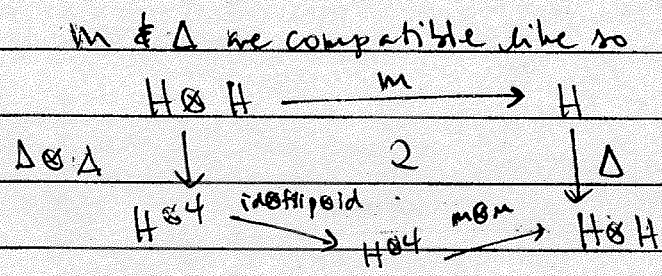 m & Δ are compatible like so
m
H⊗H H
Δ⊗Δ 2 Δ
H⊗4 id⊗flip⊗id H⊗4 m⊗m H⊗H